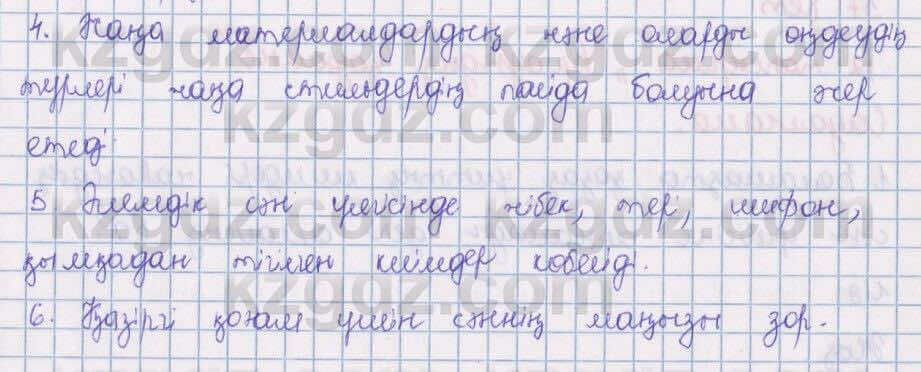 4. Жаңа материалдардың және оларды өңдеудің
түрлері жаңа стильдердің пайда болуына әсер
етеді
5 Әлемдік сән үлгісінде жібек, тері, шифон,
қымқадан тігілген киімдер көбейді.
6. Қазіргі қоғам үшін сәннің маңызы зор.
kzgdz.com